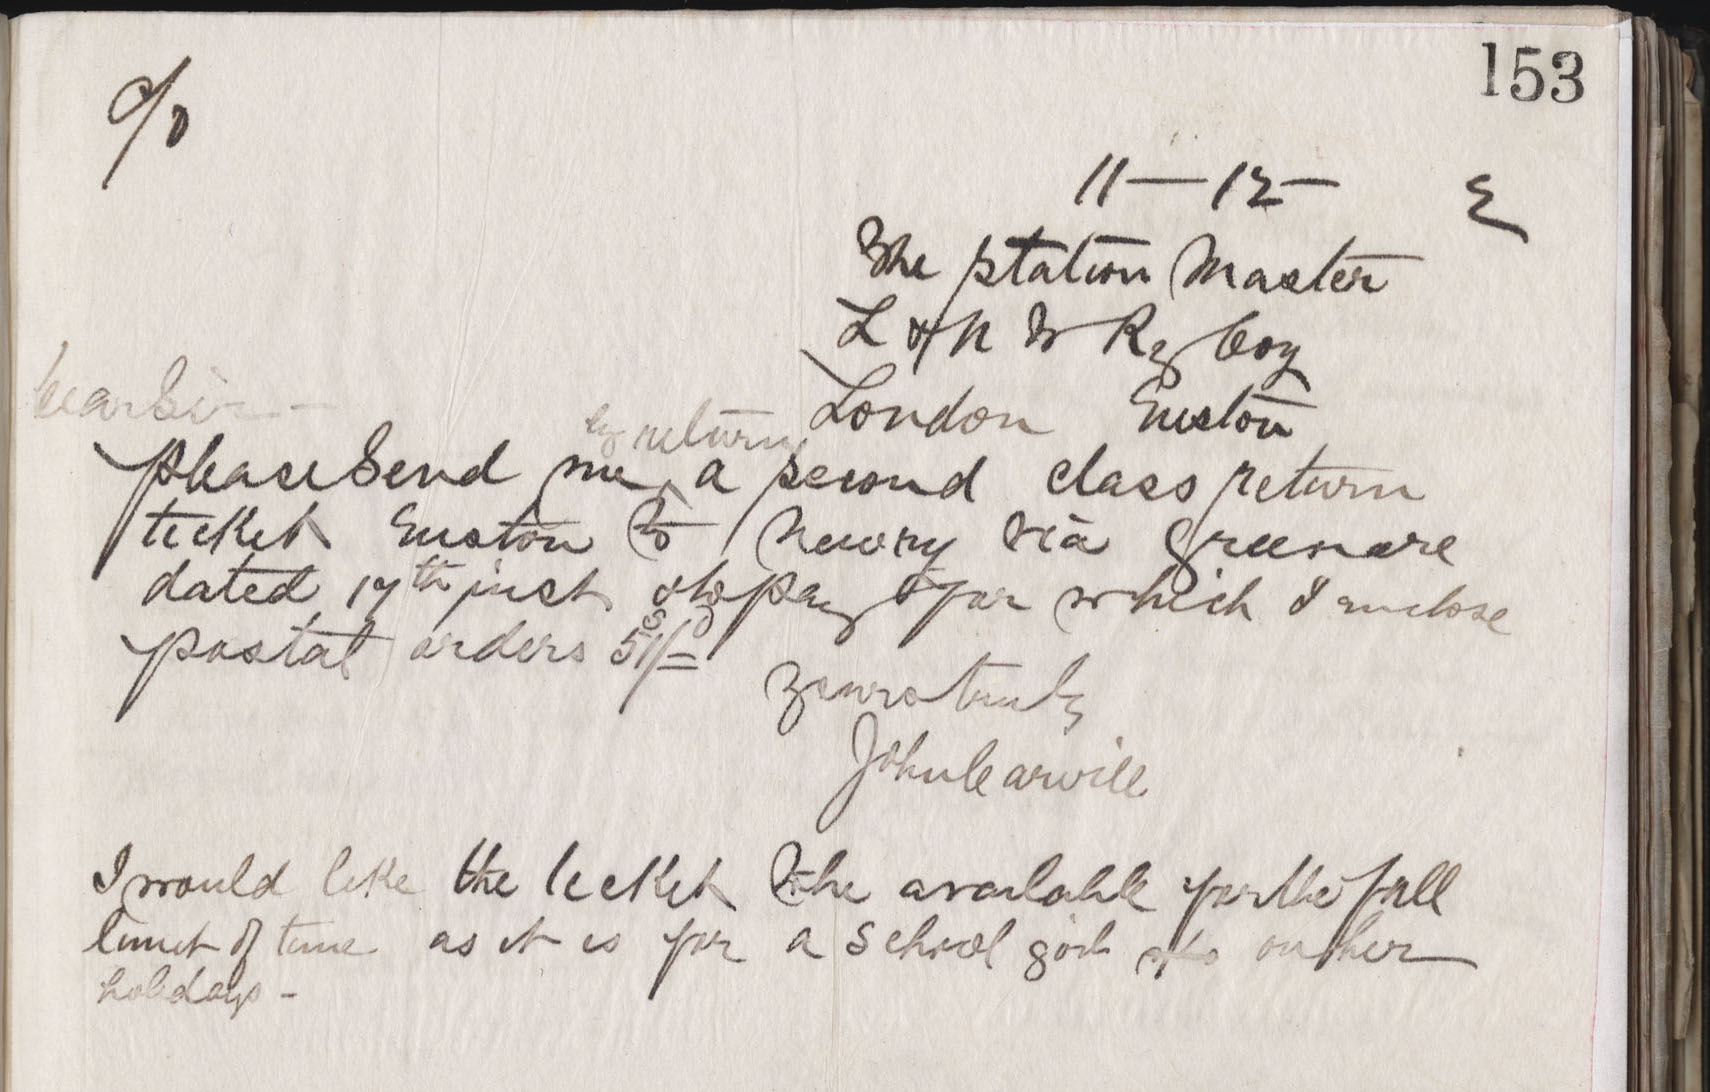 153
11 — 12 —
The Station Master
L & N W Ry Coy
London Euston
Dear Sir —
by return
please Send me a second class return
ticket Euston to Newry via Greenore
dated 17th inst & to pay for which I enclose
postal orders 51/=
yours truly
John Carvill
I would like the ticket to be available for the full
limit of time as it is for a School girl on her
holidays -